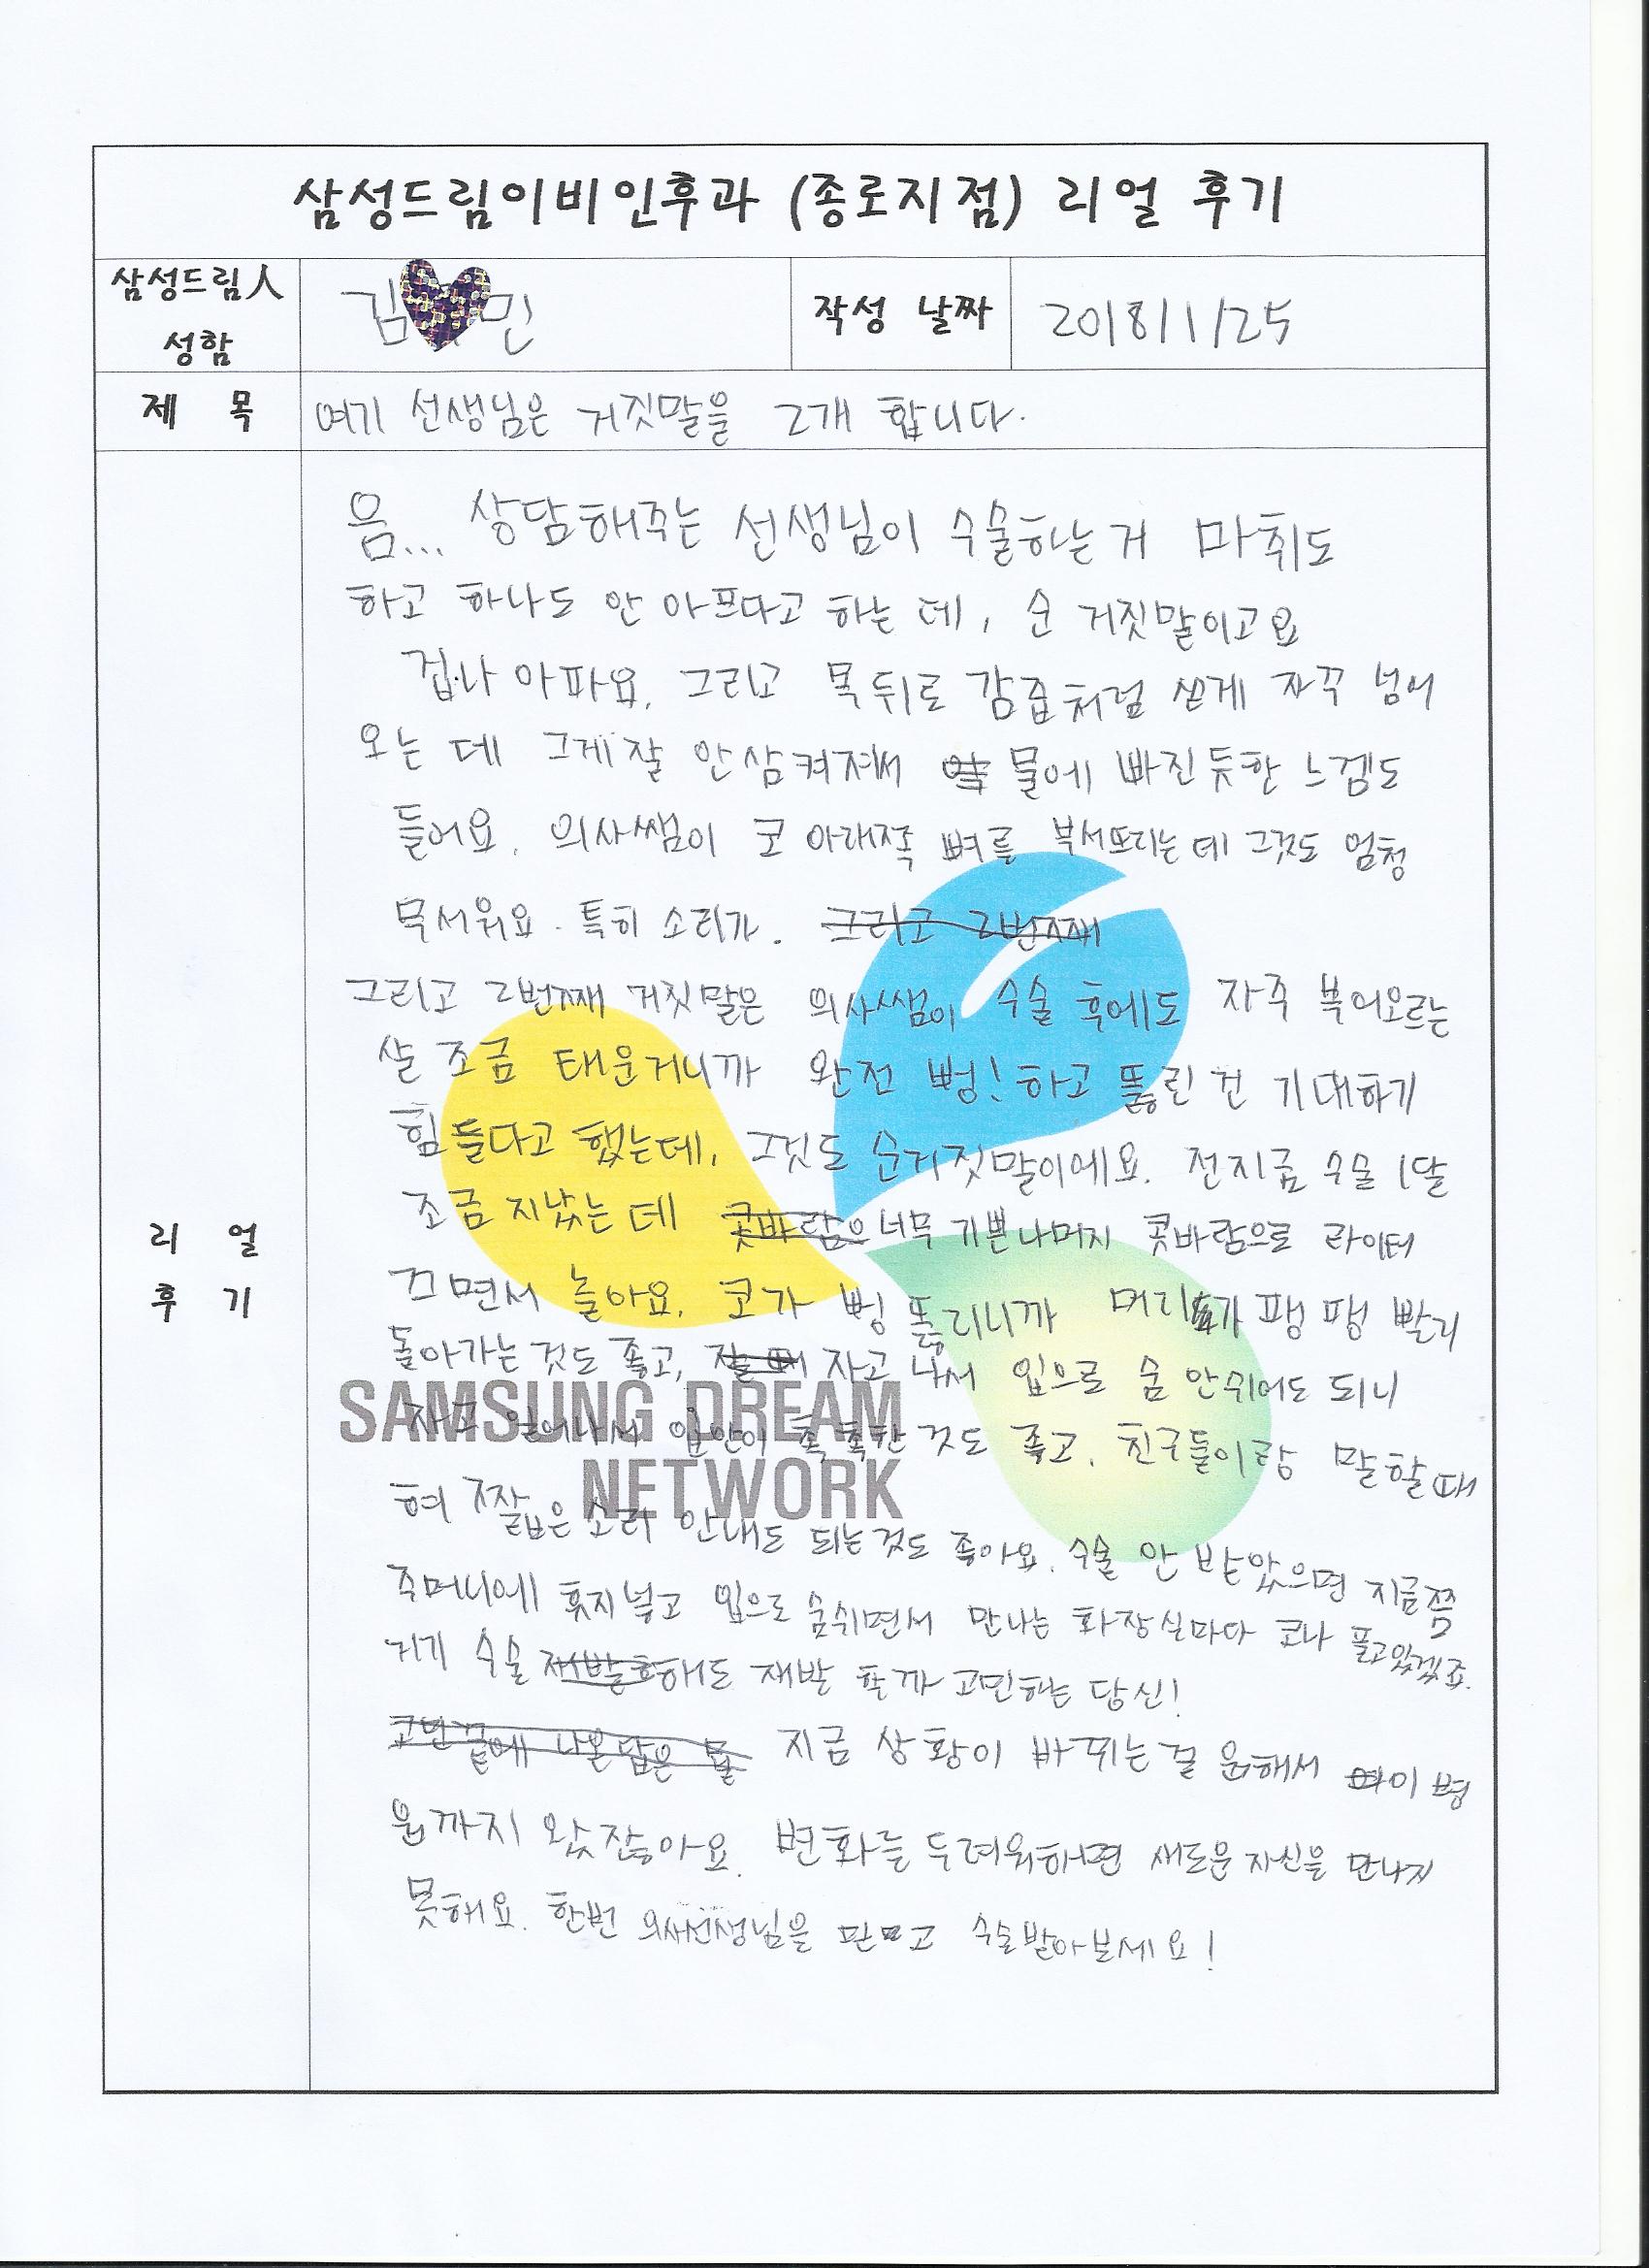 삼성드림이비인후과 (종로지점) 리얼 후기
삼성드림人 성함
김 민
작성 날짜
2018/1/25
제 목
여기 선생님은 거짓말을 2개 합니다.
리 얼 후 기
음... 상담해주는 선생님이 수술하는거 마취도
하고 하나도 안 아프다고 하는 데, 순 거짓말이고요
겁나 아파요. 그리고 목뒤로 감즙처럼 쉰게 자꾸 넘어
오는 데 그게 잘 안삼켜져서 물에 빠진듯한 느껨도
들어요. 의사쌤이 코 아래쪽 뼈를 부서뜨리는데 그것도 엄청
묵서워요. 특히 소리가. 그리고 2번째
그리고 2번째 거짓말은 의사쌤이 수술 후에도 자주 부어오르는
살 조금 태운거니까 완전 뻥! 하고 뚫린 건 기대하기
힘들다고 했는데, 그것도 순거짓말이에요. 전지금 수술 1달
조금 지났는 데 콧바람으 너무 기쁜나머지 콧바람으로 라이터
끄면서 놀아요. 코가 뻥 뚫리니까 머리가 팽 팽 빨리
돌아가는것도 좋고, 자고 나서 입으로 숨 안쉬어도 되니
자고 일어나서 입안이 촉촉한 것도 좋고, 친구들이랑 말할때
혀 짧은 소리 안내도 되는것도 좋아요. 수술 안 받았으면 지금쯤
주머니에 휴지넣고 입으로 숨쉬면서 만나는 화장실마다 코나 풀고있겠죠.
거기 수술 해도 재발 할까 고민하는 당신!
지금 상황이 바뀌는걸 원해서 이 병
원까지 왔잖아요. 변화를 두려워하면 새로운 자신을 만나지
못해요. 한번 의사선생님을 믿고 수술받아보세요!
SAMSUNG DREAM
NETWORK